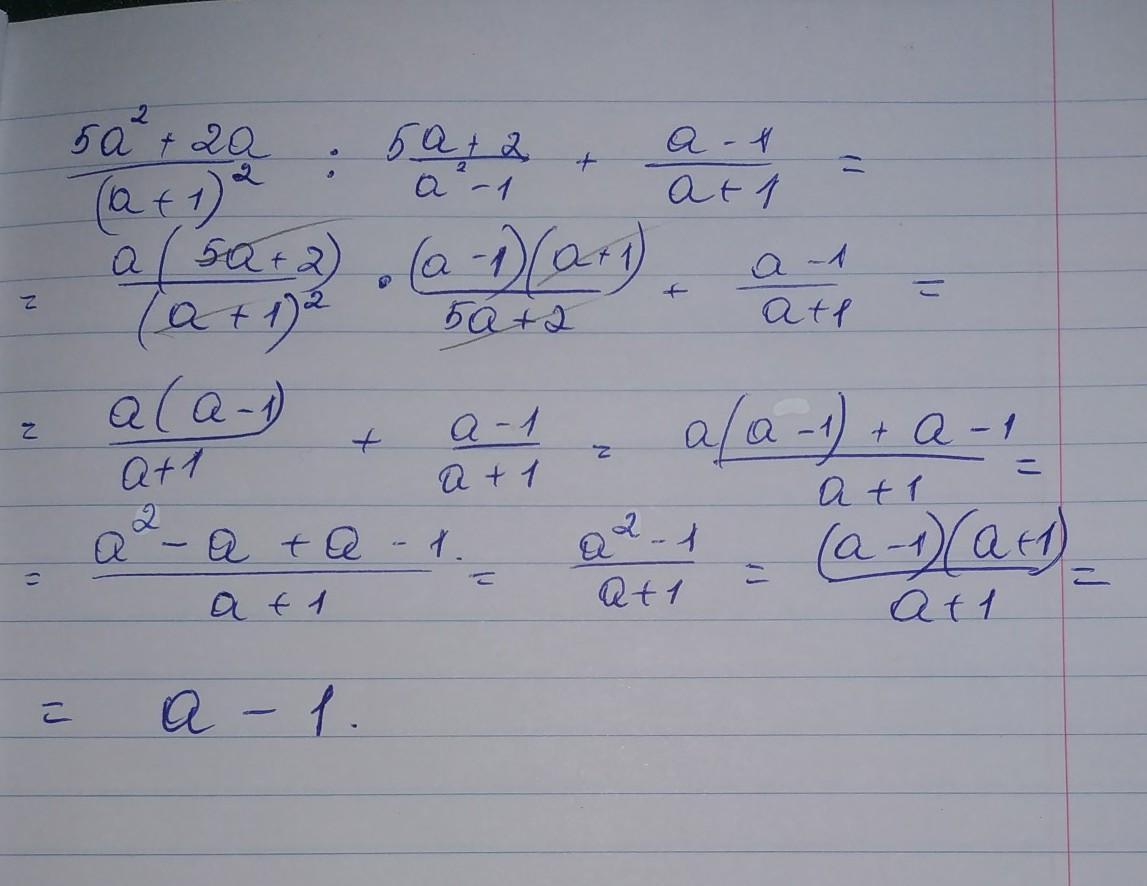 (5a² + 2a)/(a + 1)² : (5a + 2)/(a² - 1) + (a - 1)/(a + 1) =
= a(5a + 2)/(a + 1)² · (a - 1)(a + 1)/(5a + 2) + (a - 1)/(a + 1) =
= a(a - 1)/(a + 1) + (a - 1)/(a + 1) = (a(a - 1) + a - 1)/(a + 1) =
= (a² - a + a - 1.)/(a + 1) = (a² - 1)/(a + 1) = (a - 1)(a + 1)/(a + 1) =
= a - 1.